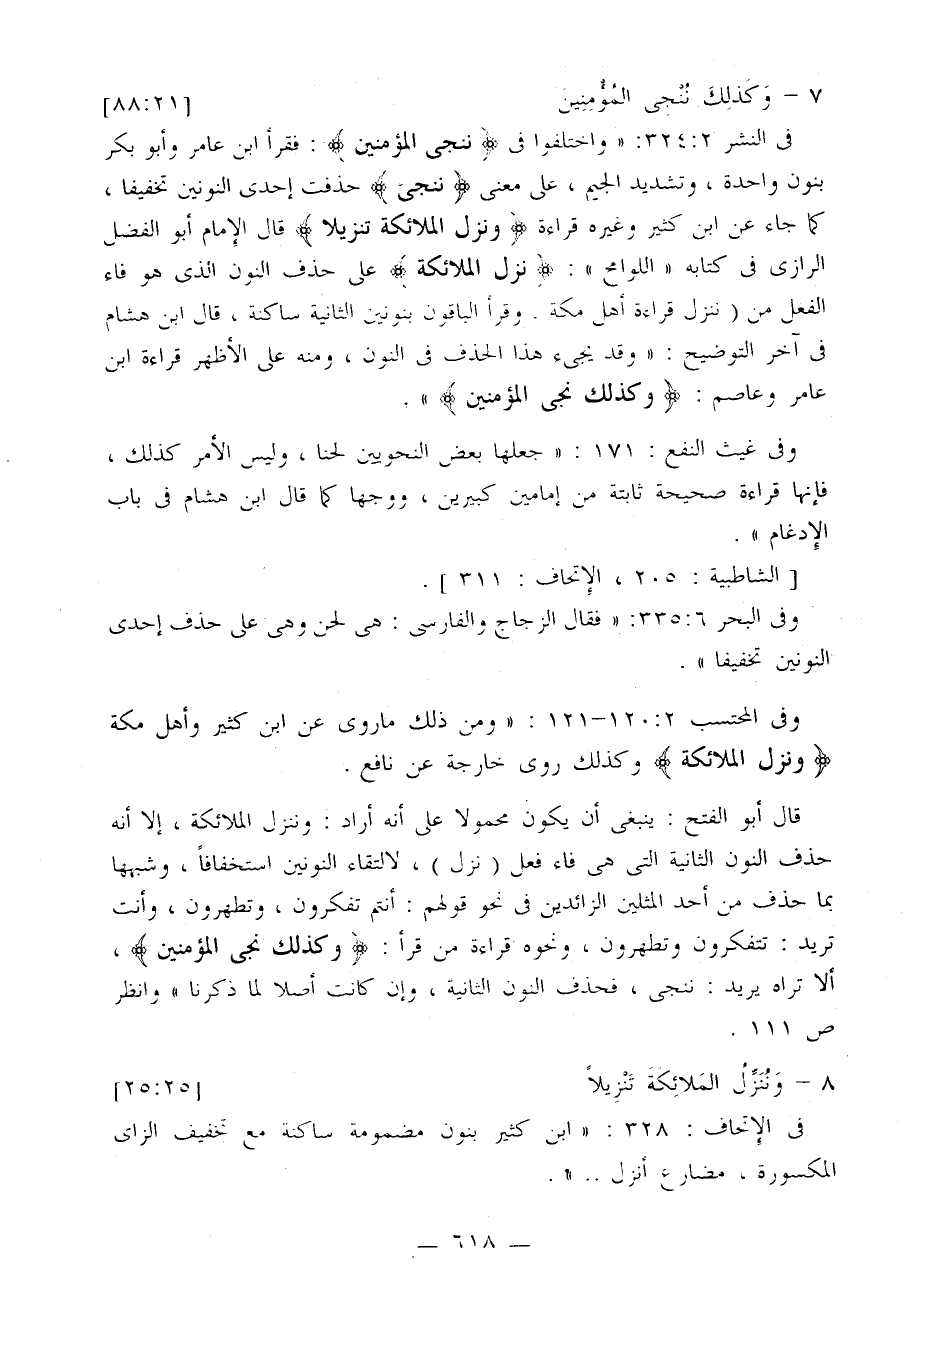 ٧ – وَكَذلِكَ نُنْجِى المُؤْمِنِينَ [٢١:٨٨]
فى النشر ٣٢٤:٢: « واختلفوا فى ﴿ ننجى المؤمنين ﴾ : فقرأ ابن عامر وأبو بكر
بنون واحدة ، وتشديد الجيم ، على معنى ﴿ ننجى ﴾ حذفت إحدى النونين تخفيفا ،
كما جاء عن ابن كثير وغيره قراءة ﴿ ونزل الملائكة تنزيلا ﴾ قال الإمام أبو الفضل
الرازى فى كتابه « اللوامح » : ﴿ نزل الملائكة ﴾ على حذف النون الذى هو فاء
الفعل من ( ننزل قراءة أهل مكة . وقرأ الباقون بنونين الثانية ساكنة ، قال ابن هشام
فى آخر التوضيح : « وقد يجىء هذا الحذف فى النون ، ومنه على الأظهر قراءة ابن
عامر وعاصم : ﴿ وكذلك نجى المؤمنين ﴾ » .
وفى غيث النفع : ١٧١ : « جعلها بعض النحويين لحنا ، وليس الأمر كذلك ،
فإنها قراءة صحيحة ثابتة من إمامين كبيرين ، ووجهها كما قال ابن هشام فى باب
الإدغام » .
[ الشاطبية : ٢٠٥ ، الإتحاف : ٣١١ ] .
وفى البحر ٣٣٥:٦: « فقال الزجاج والفارسى : هى لحن وهى على حذف إحدى
النونين تخفيفا » .
وفى المحتسب ١٢٠:٢–١٢١ : « ومن ذلك ماروى عن ابن كثير وأهل مكة
﴿ ونزل الملائكة ﴾ وكذلك روى خارجة عن نافع .
قال أبو الفتح : ينبغى أن يكون محمولا على أنه أراد : وننزل الملائكة ، إلا أنه
حذف النون الثانية التى هى فاء فعل ( نزل ) ، لالتقاء النونين استخفافاً ، وشبهها
بما حذف من أحد المثلين الزائدين فى نحو قولهم : أنتم تفكرون ، وتطهرون ، وأنت
تريد : تتفكرون وتطهرون ، ونحوه قراءة من قرأ : ﴿ وكذلك نجى المؤمنين ﴾ ،
ألا تراه يريد : ننجى ، فحذف النون الثانية ، وإن كانت أصلا لما ذكرنا » وانظر
ص ١١١ .
٨ – وَنُنَزِّلُ المَلائِكَةَ تَنْزِيلاً [٢٥:٢٥]
فى الإتحاف : ٣٢٨ : « ابن كثير بنون مضمومة ساكنة مع تخفيف الزاى
المكسورة ، مضارع أنزل .. » .
— ٦١٨ —